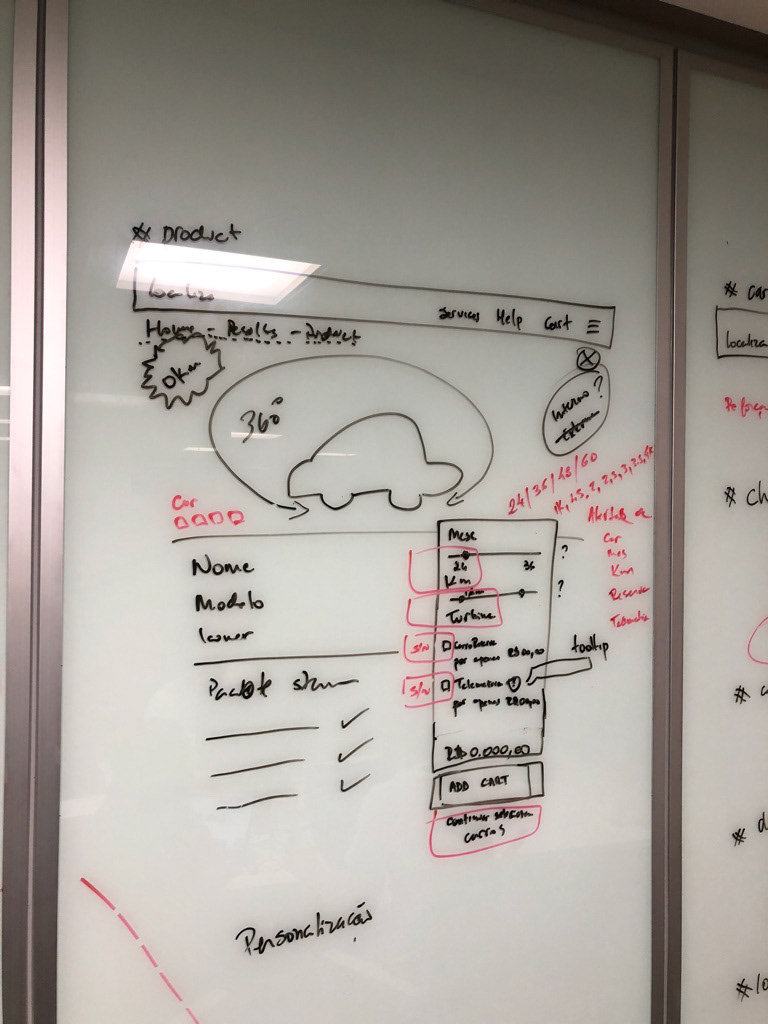 * Product
Localiza
Services Help Cart
Home - Results - Product
0Km
360°
Interno ?
Externo
24/36/48/60
1K, 1.5, 2, 2.5, 3, 3.5, 4K
Cor
Mese
24 36
?
Km
?
Turbine
Nome
Modelo
Cor
Mes
Km
Reserva
Telemetria
S/N
Carro Reserva
por apenas R$00,00
tooltip
S/N
Telemetria ?
por apenas R$00,00
Pacote
R$ 0.000,00
ADD CART
Continuar
carros
Personalização
* car
Localiza
* ch
*
* d
* lo